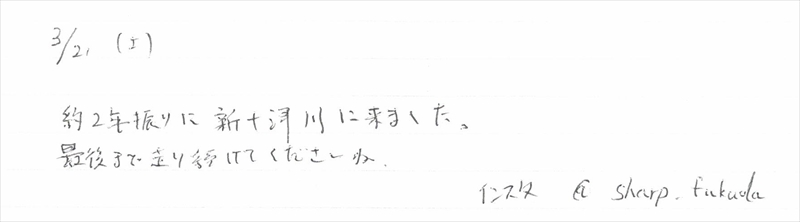 3/21 (土)
約2年振りに新十津川に来ました。
最後まで走り続けてくださいね.
インスタ @ sharp.fukuda